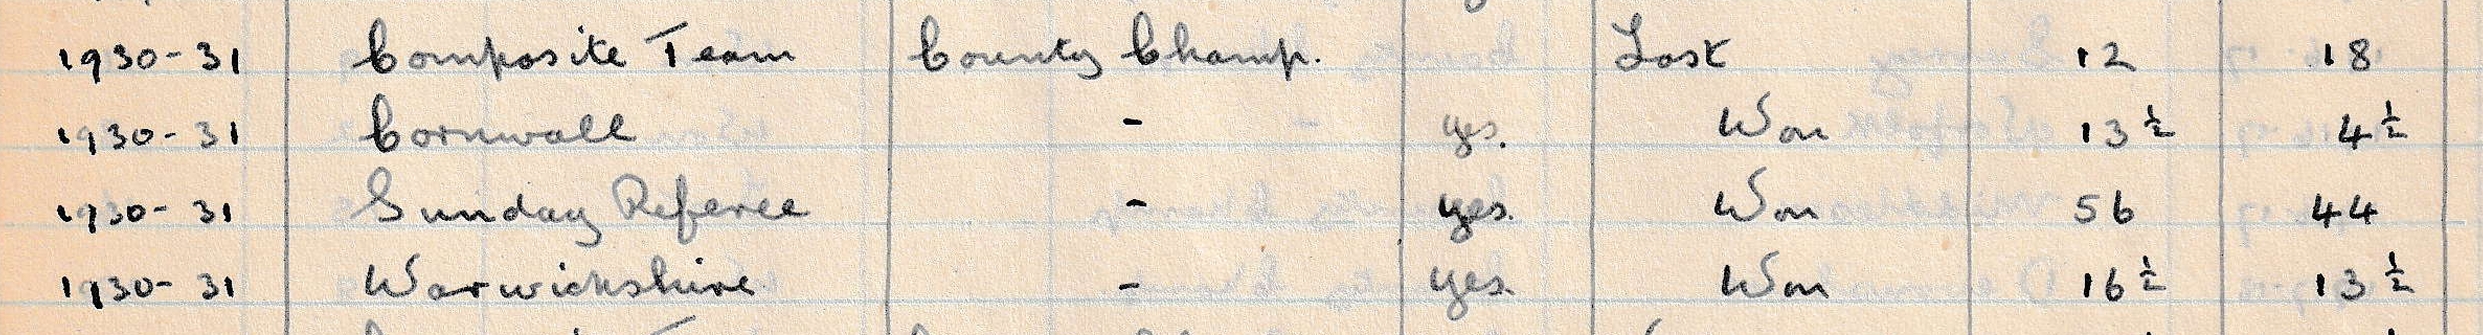 1930-31 Composite Team County Champ. Lost 12 18
1930-31 Cornwall - yes. Won 13½ 4½
1930-31 Sunday Referee - yes. Won 56 44
1930-31 Warwickshire - yes. Won 16½ 13½